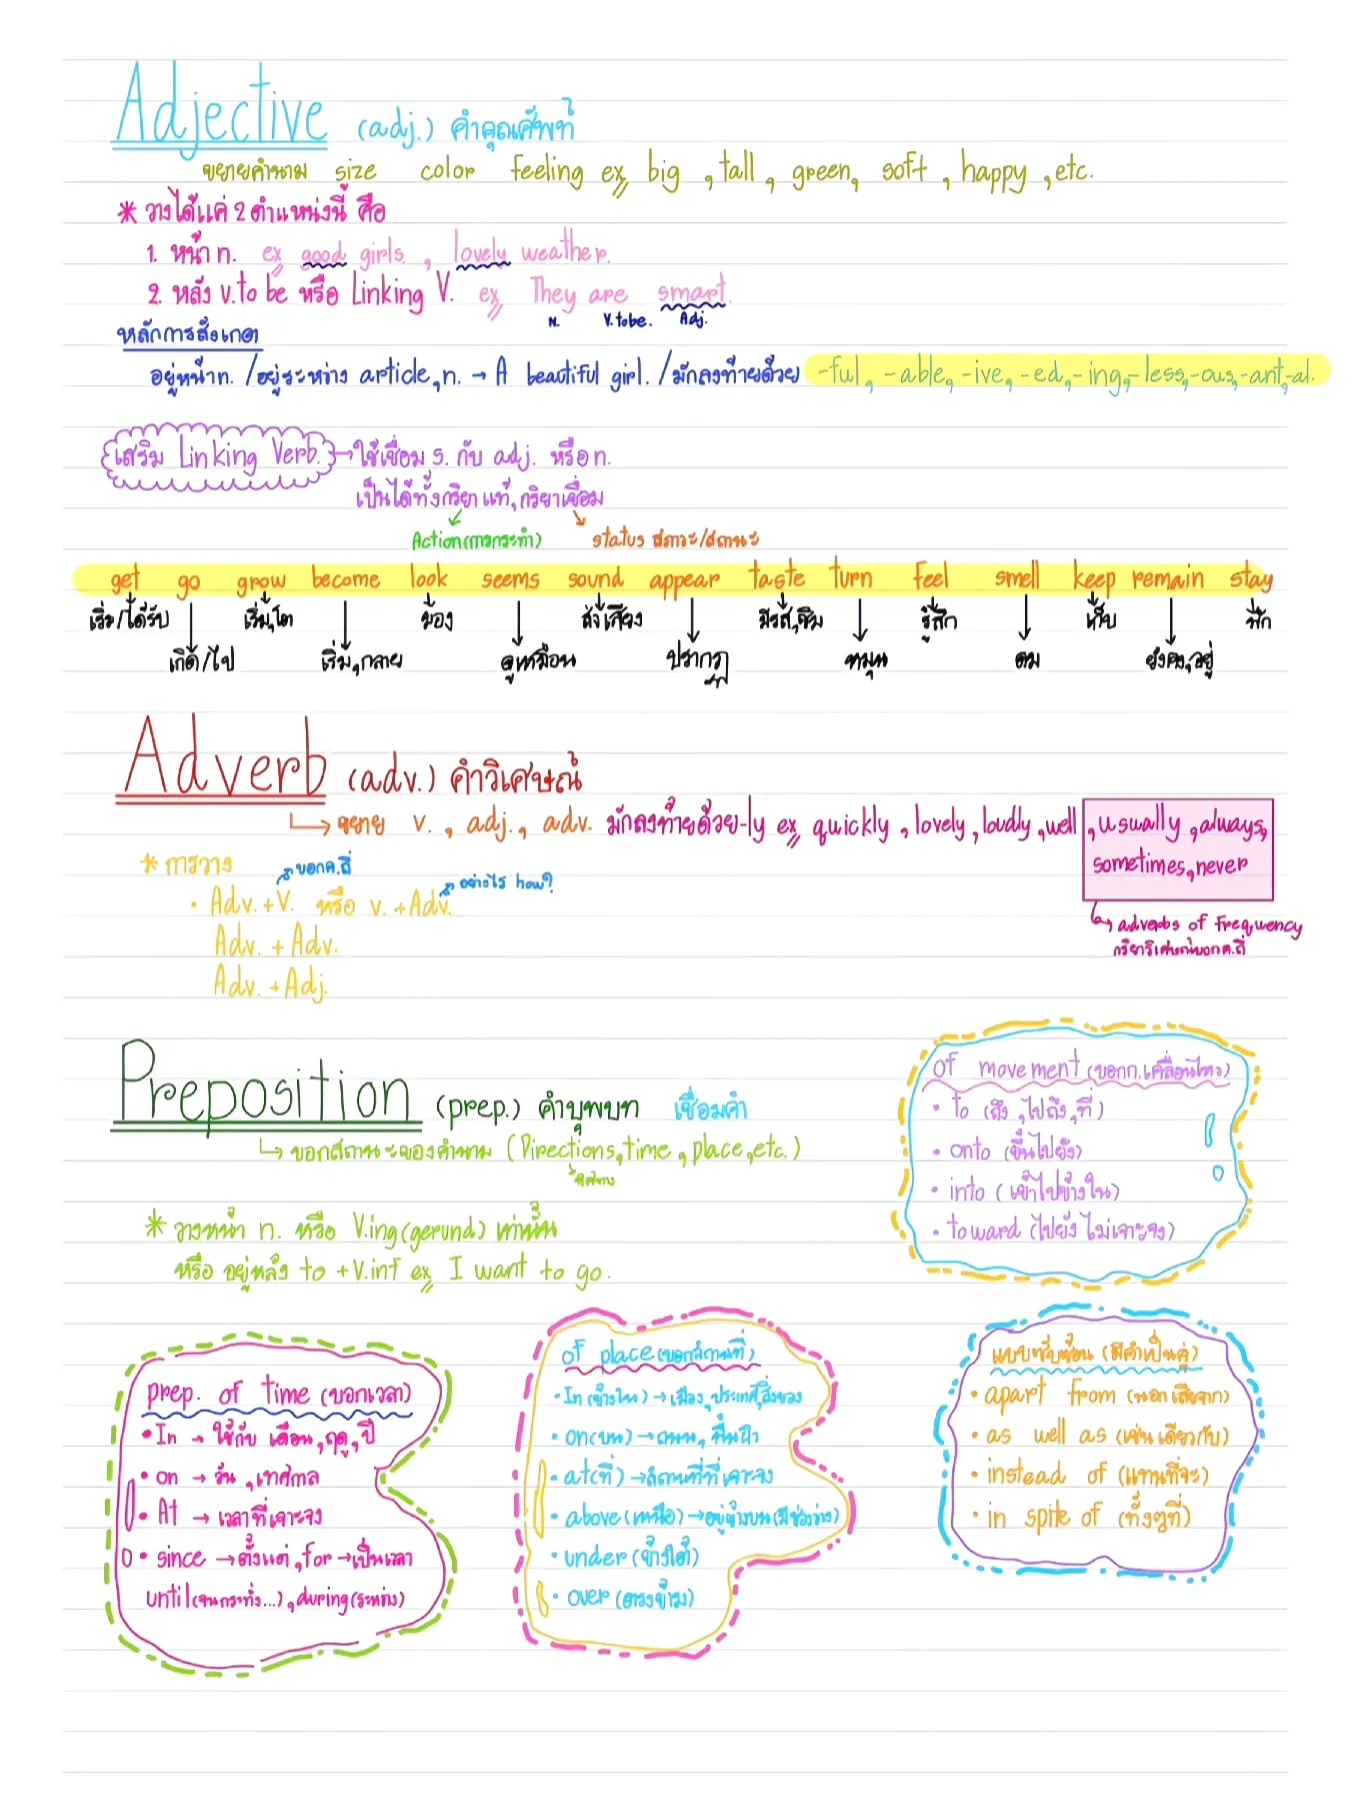 Adjective (adj.) คำคุณศัพท์
ขยายคำนาม size color feeling ex big , tall , green, soft , happy , etc.
* วางได้แค่ 2 ตำแหน่งนี้ คือ
1. หน้า n. ex good girls , lovely weather.
2. หลัง v.to be หรือ Linking V. ex They are smart.
N. V.tobe. Adj.
หลักการสังเกต
อยู่หน้า n. / อยู่ระหว่าง article, n. → A beautiful girl. / มักลงท้ายด้วย -ful, -able, -ive, -ed, -ing, -less, -ous, -ant, -al.
เสริม Linking Verb. → ใช้เชื่อม s. กับ adj. หรือ n.
เป็นได้ทั้งกริยาแท้, กริยาเชื่อม
Action(การกระทำ) status สภาวะ/สถานะ
get go grow become look seems sound appear taste turn feel smell keep remain stay
เริ่ม/ได้รับ เริ่ม,โต มอง ส่งเสียง มีรส,ชิม รู้สึก เก็บ พัก
เกิด/ไป เริ่ม,กลาย ดูเหมือน ปรากฏ หมุน ดม ยังคง,อยู่
Adverb (adv.) คำวิเศษณ์
↳ ขยาย v. , adj. , adv. มักลงท้ายด้วย -ly ex quickly , lovely , loudly , well , usually , always,
sometimes, never
↳ adverbs of frequwency
กริยาวิเศษณ์บอก ค.ถี่
* การวาง
บอก ค.ถี่ อย่างไร how?
· Adv. + V. หรือ v. + Adv.
Adv. + Adv.
Adv. + Adj.
Preposition (prep.) คำบุพบท เชื่อมคำ
↳ บอกสถานะของคำนาม (Directions, time , place, etc.)
ทิศทาง
* วางหน้า n. หรือ V.ing (gerund) เท่านั้น
หรือ อยู่หลัง to + V.inf ex I want to go.
of movement (บอกก.เคลื่อนไหว)
· to (ถึง , ไปถึง , ที่)
· onto (ขึ้นไปยัง)
· into (เข้าไปข้างใน)
· toward (ไปยัง ไม่เจาะจง)
prep. of time (บอกเวลา)
· In → ใช้กับ เดือน, ฤดู, ปี
· on → วัน , เทศกาล
· At → เวลาที่เจาะจง
· since → ตั้งแต่ , for → เป็นเวลา
until (จนกระทั่ง...) , during (ระหว่าง)
of place (บอกสถานที่)
· In (ข้างใน) → เมือง, ประเทศ, สิ่งของ
· on (บน) → ถนน, พื้นผิว
· at (ที่) → สถานที่ที่เจาะจง
· above (เหนือ) → อยู่ข้างบน (มีช่องว่าง)
· under (ข้างใต้)
· over (ตรงข้าม)
แบบซับซ้อน (มีคำเป็นคู่)
· apart from (นอกเสียจาก)
· as well as (เช่นเดียวกับ)
· instead of (แทนที่จะ)
· in spite of (ทั้งๆที่)